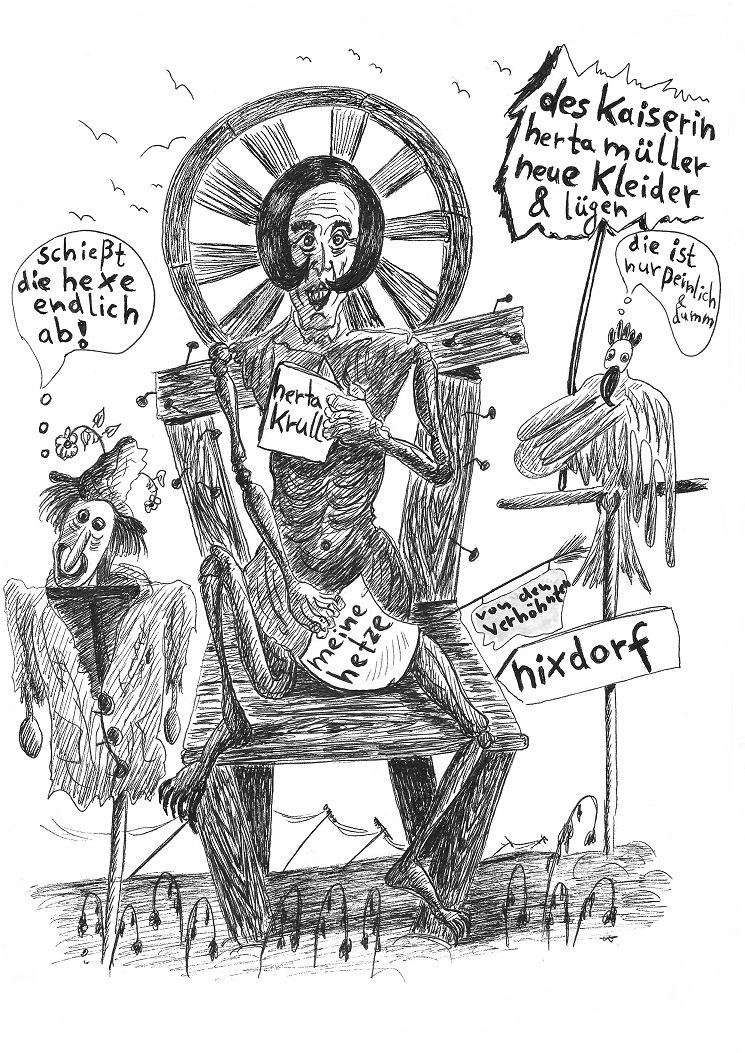 des Kaiserin
herta müller
neue Kleider
& lügen
schießt
die hexe
endlich
ab!
die ist
nur peinlich
& dumm
herta
Krull
meine
hetze
von den
Verhöhnten
nixdorf